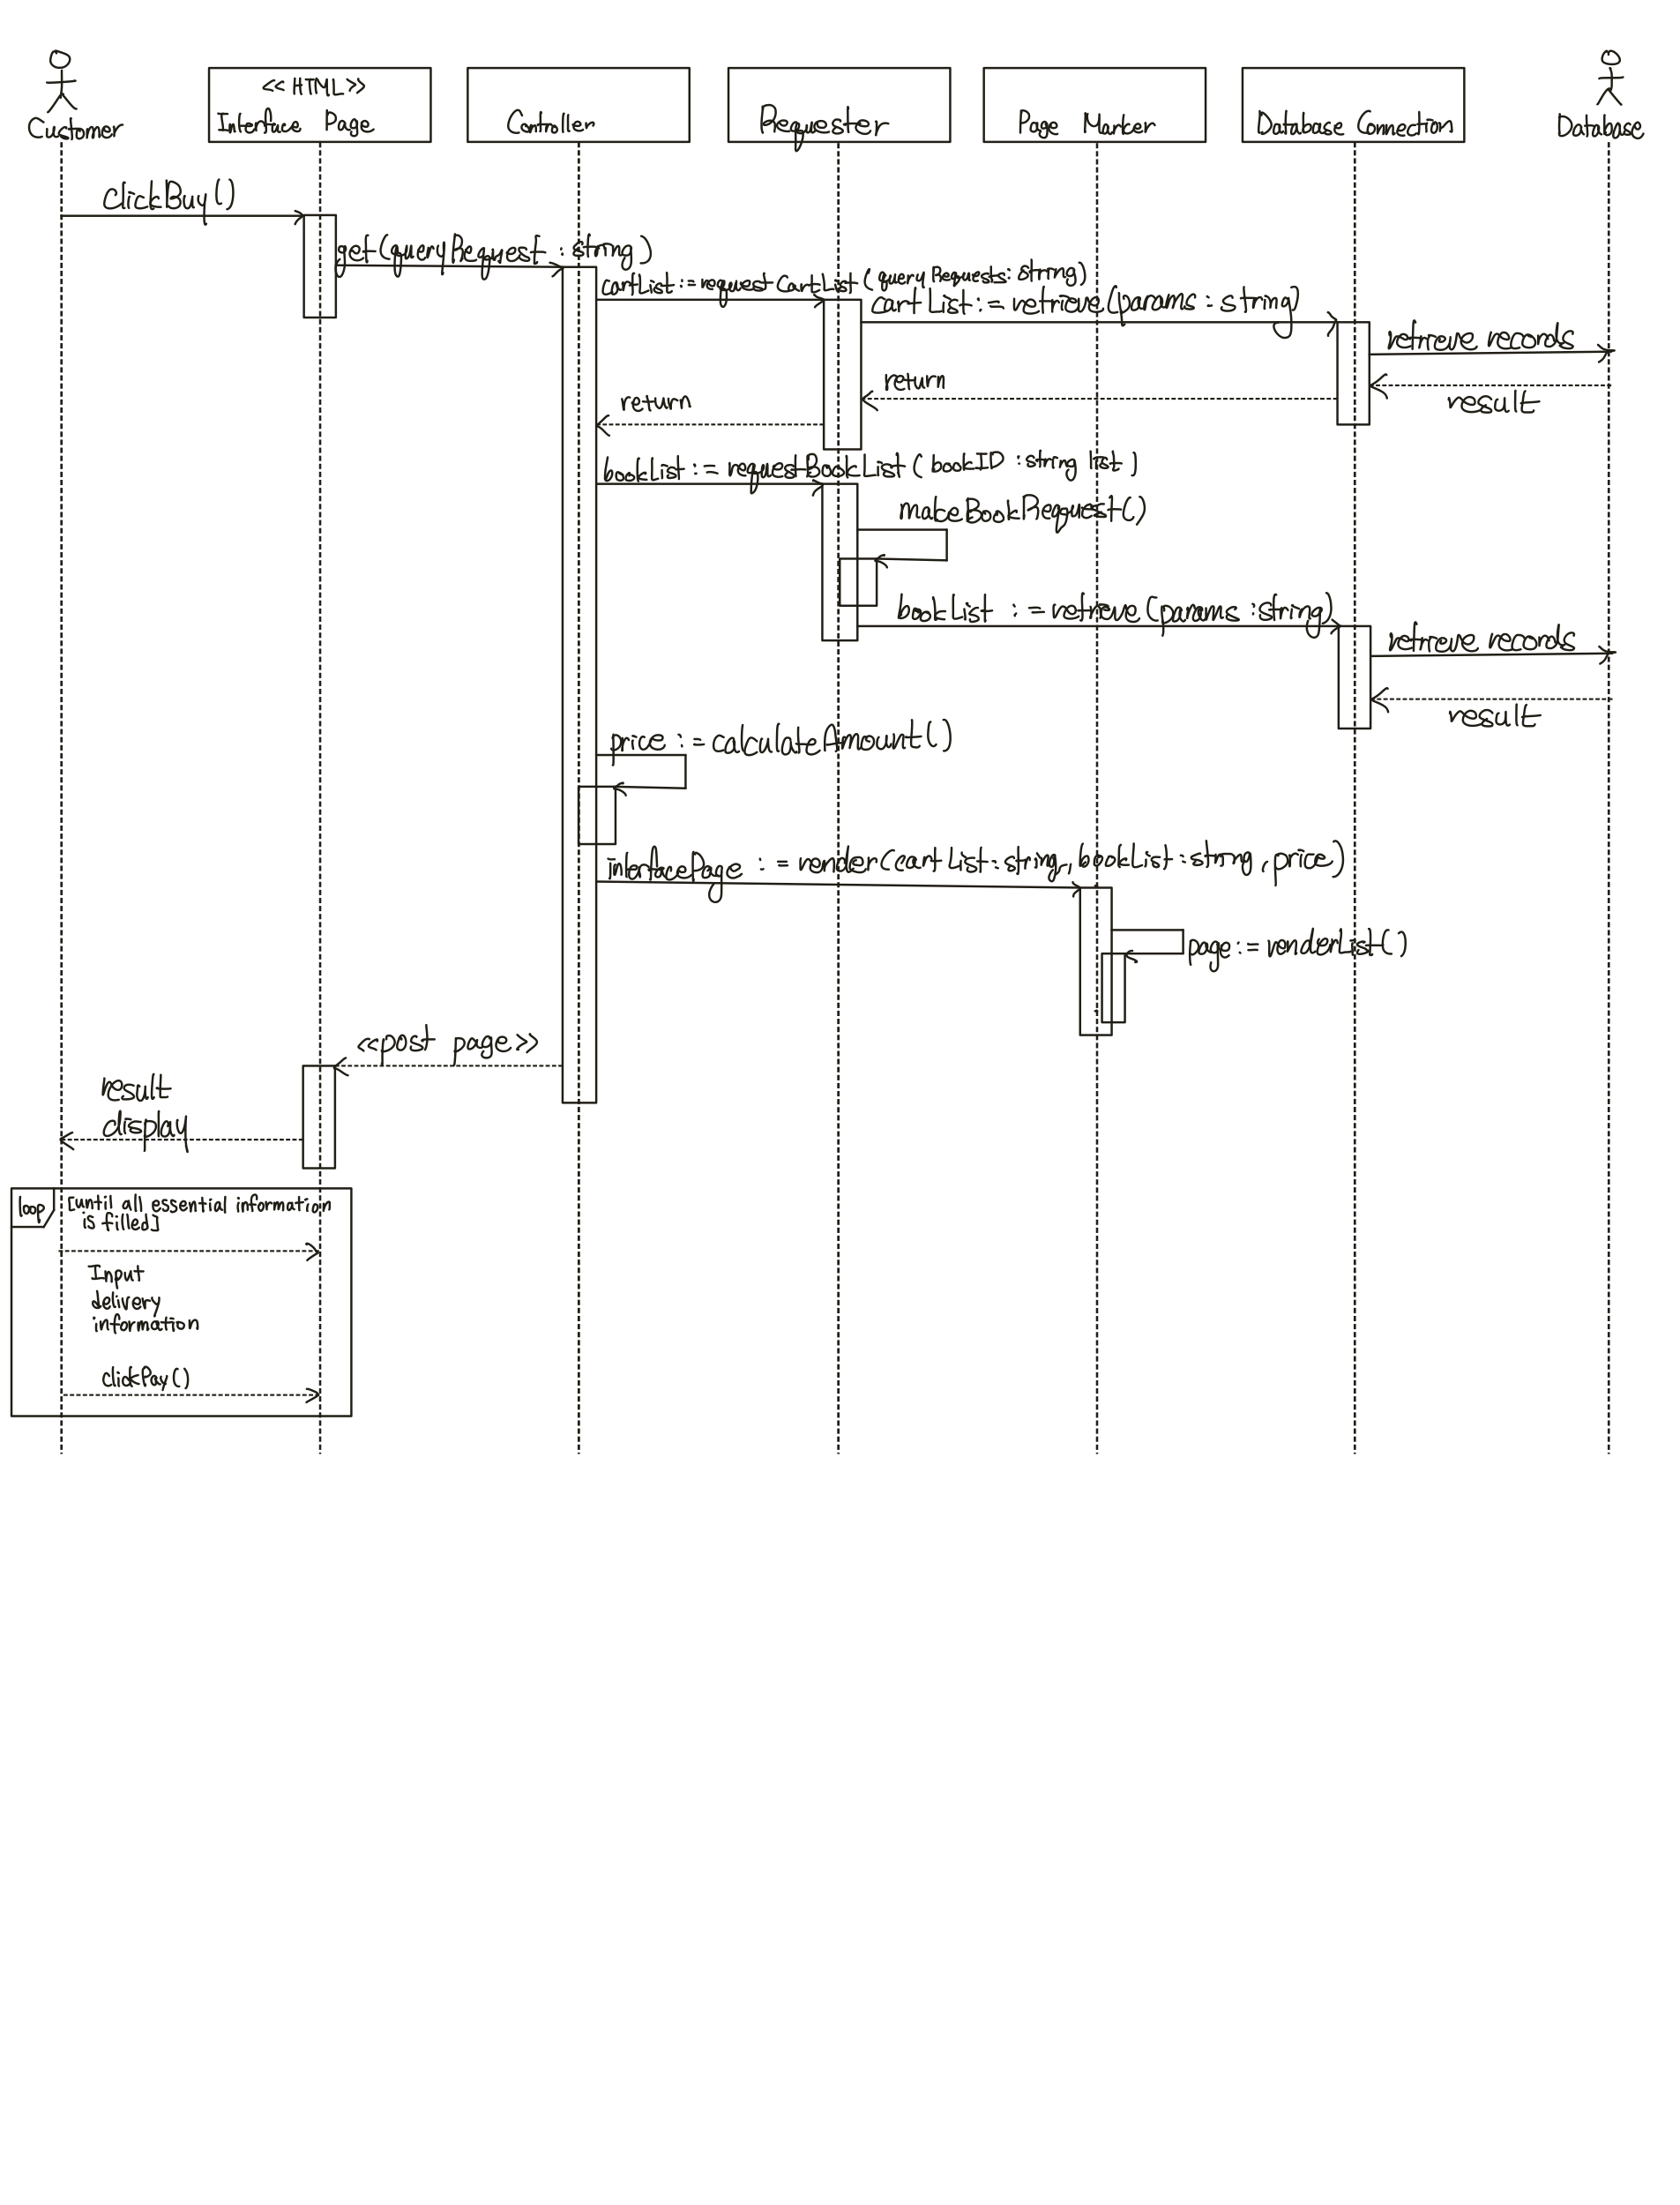 Customer
<< HTML >>
Interface Page
Controller
Requester
Page Marker
Database Connection
Database
clickBuy()
get(queryRequest : string)
cartList := requestCartList (queryRequests: string)
cartList := retrieve(params : string)
retrieve records
result
return
return
bookList := requestBookList (bookID : string list)
makeBookRequest()
bookList := retrieve (params : string)
retrieve records
result
price := calculateAmount()
interfacePage := render(cartList:string, bookList:string, price)
page := renderList()
<<post page>>
result
display
loop [until all essential information
is filled]
Input
delivery
information
clickPay()